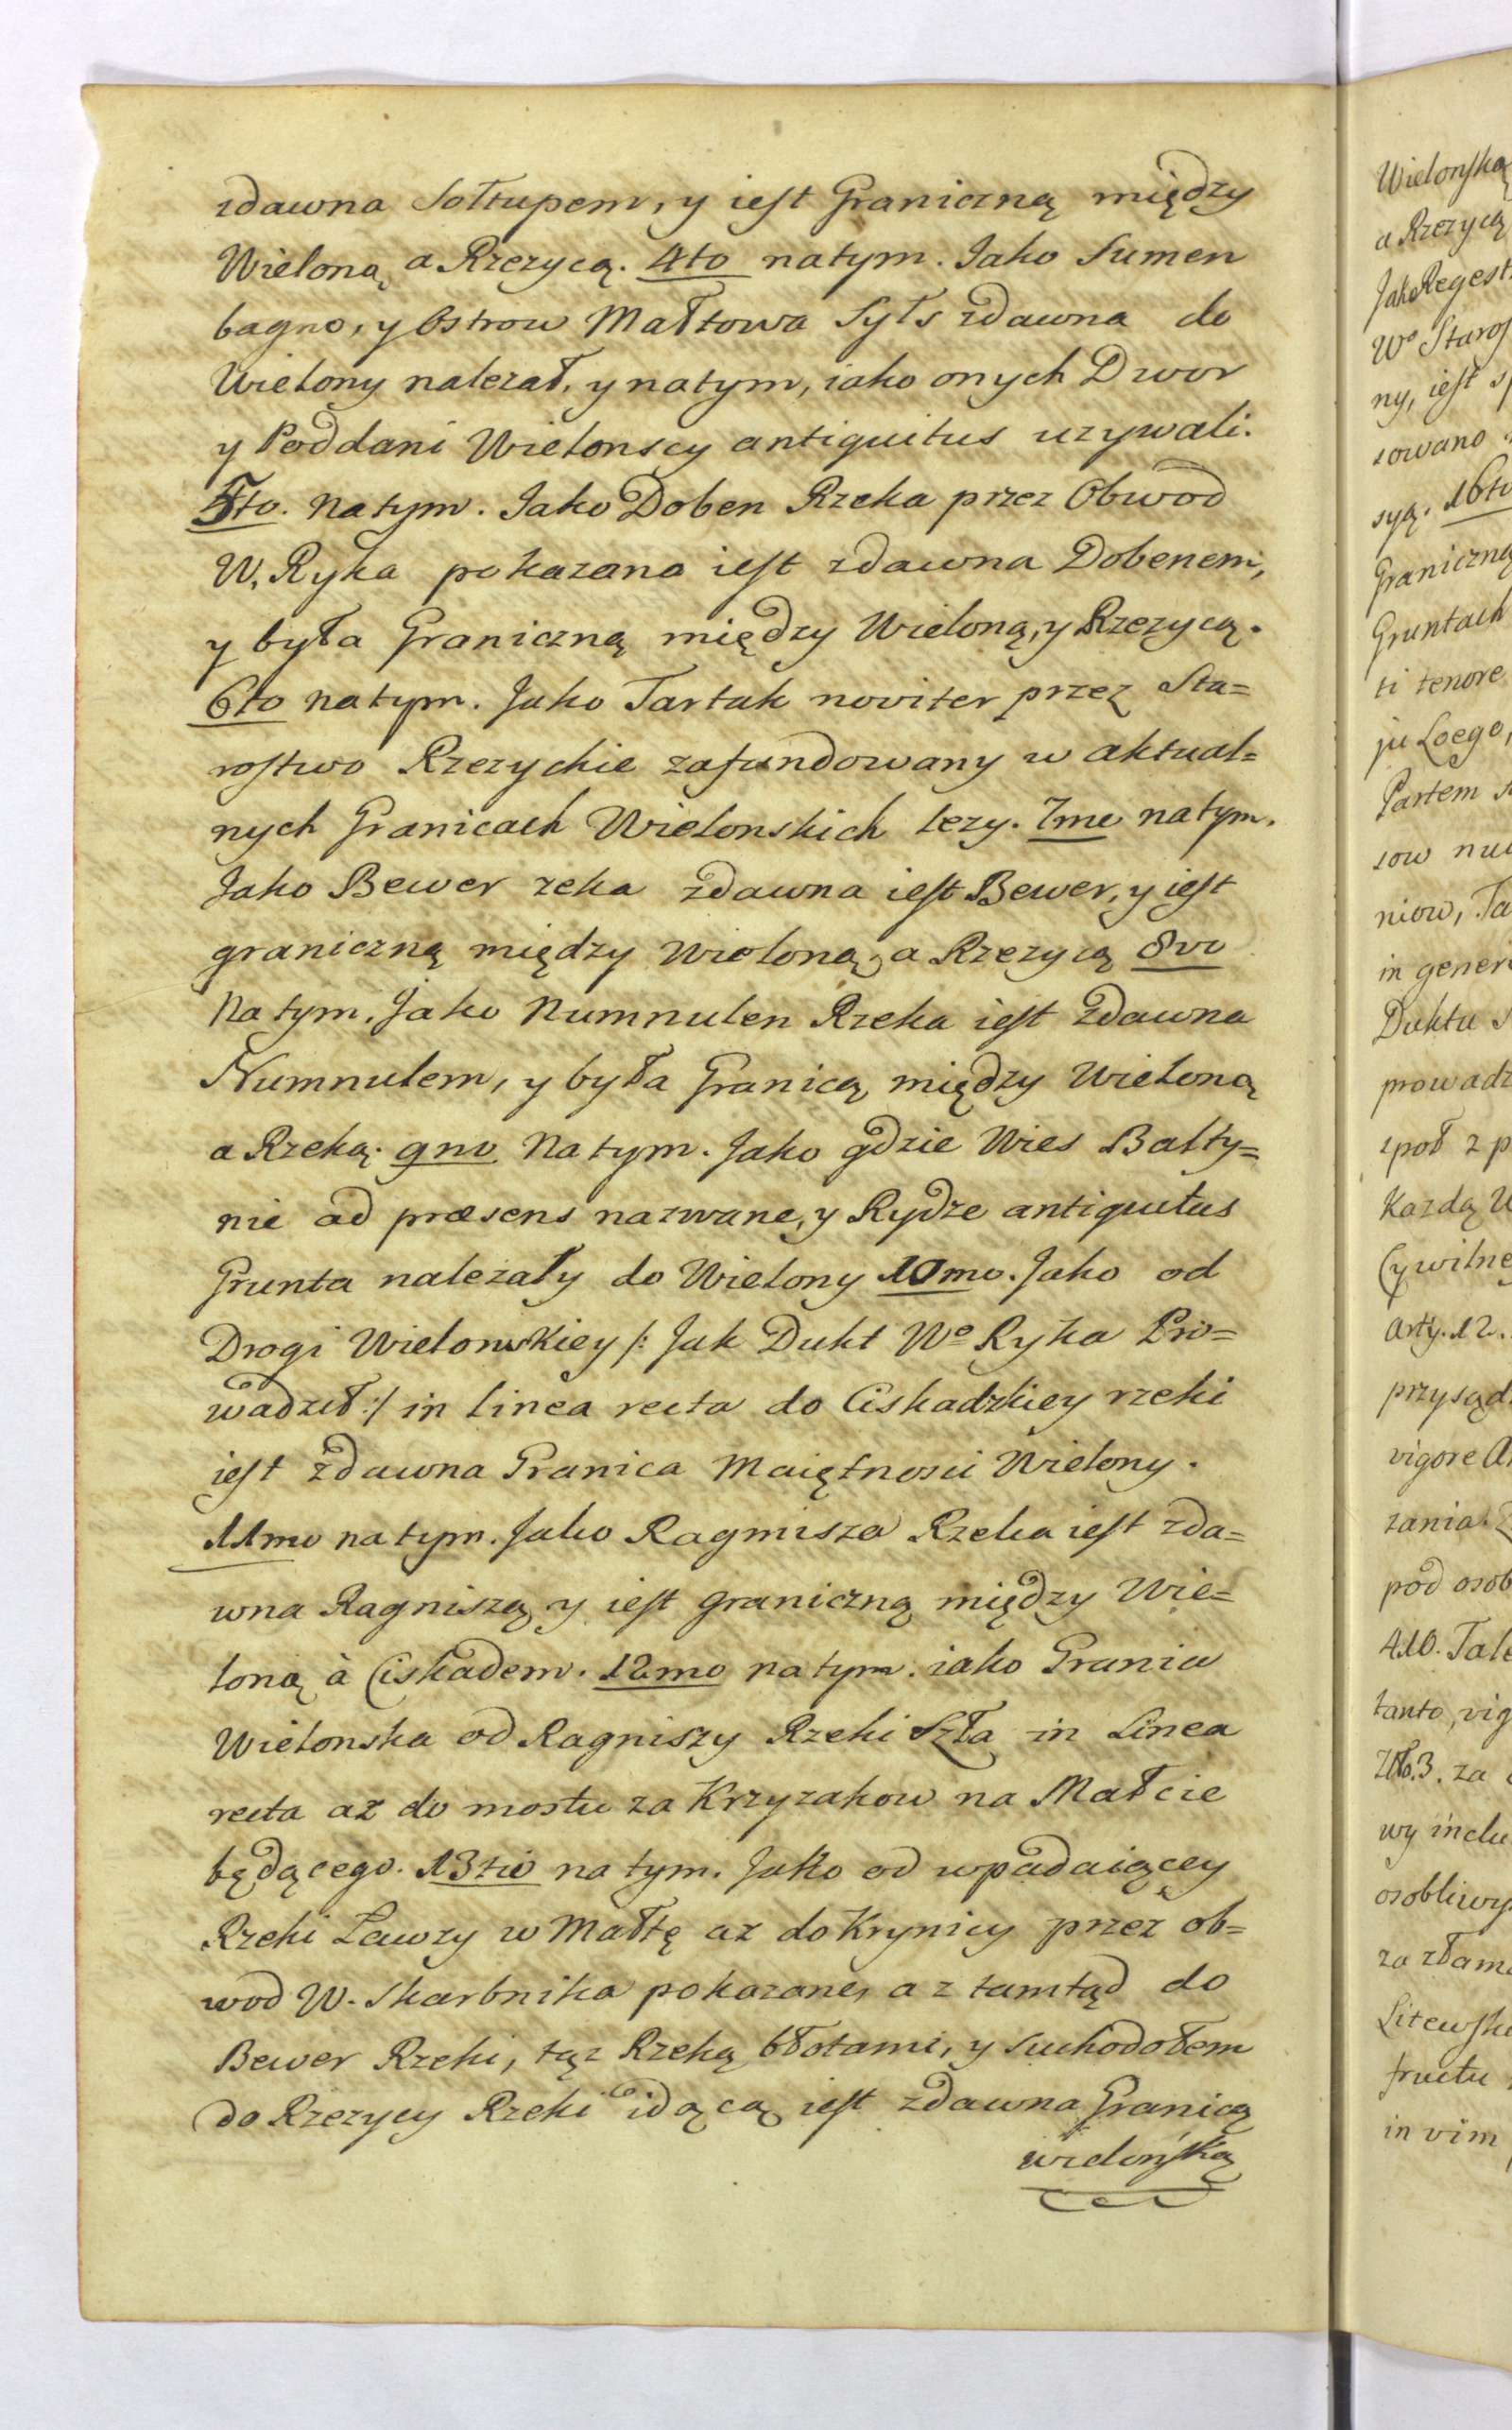 zdawna Sołtupem, y iest Graniczną między
Wieloną a Rzezycą. 4to natym. Jako Sumen
bagno, y Ostrow Małtowa Syls zdawna do
Wielony nalezał, y natym, iako onych Dwor
y Poddani Wielonscy antiquitus uzywali.
5to. natym. Jako Doben Rzeka przez Obwod
W. Ryka pokazana iest zdawna Dobenem,
y była Graniczną między Wieloną, y Rzezycą.
6to natym. Jako Tartak noviter przez Sta=
rostwo Rzezyckie zafundowany w aktual=
nych Granicach Wielonskich lezy. 7me natym.
Jako Bewer zeka zdawna iest Bewer, y iest
graniczną między Wieloną, a Rzezycą 8vo
Natym. Jako Numnulen Rzeka iest zdawna
Numnulem, y była Granicą między Wieloną
a Rzeką. 9no Natym. Jako gdzie Wies Balty=
nie ad præsens nazwane, y Rydze antiquitus
Grunta nalezały do Wielony 10mo. Jako od
Drogi Wielonskiey /: Jak Dukt Wo Ryka Pro=
wadził :/ in linea recta do Ciskadzkiey rzeki
iest zdawna Granica Maiętnosci Wielony.
11mo natym. Jako Ragnisza Rzeka iest zda=
wna Ragniszą y iest graniczną między Wie=
loną à Ciskadem. 12mo natym. iako Granica
Wielonska od Ragniszy Rzeki Szła in Linea
recta az do mostu za Krzyzakow na Małcie
będącego. 13tio natym. Jako od wpadaiącey
Rzeki Lawzy w Małtę az do Krynicy przez ob=
wod W. Skarbnika pokazane, a z tamtąd do
Bewer Rzeki, tąz Rzeką błotami, y Suchodołem
do Rzezycy Rzeki idącą iest zdawna Granicą
wielońską
Wielonską
a Rzezycą
Jako Regest
Wo Staros
ny, iest
sowano
syą. 16to
Graniczną
Gruntach
ti tenore
ju Loego,
Partem
sow
niow, Ta
in gener
Duktu
prowadz
społ z p
Kazdą W
Cywilne
Arty. 12.
przysąd
vigore
zania.
pod osob
410. Tale
tanto, vig
3. za
wy inclu
osobliwy
za złam
Litewsk
fructu
in vim